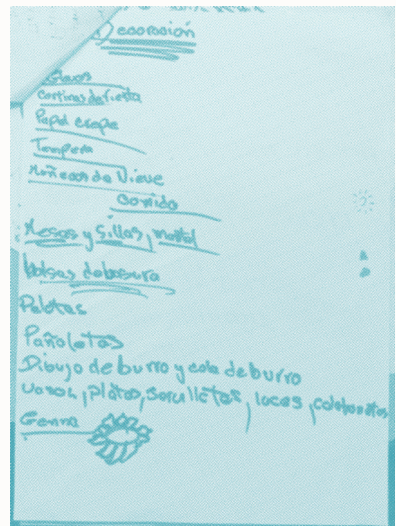 Decoración
Globos
Cortinas de Fiesta
Papel crepe
Tempera
Muñecos de Nieve
Comida
Mesas y Sillas, mantel
Bolsas de basura
Pelotas
Pañoletas
Dibujo de burro y cola de burro
Vasos, platos, servilletas,
Gemma